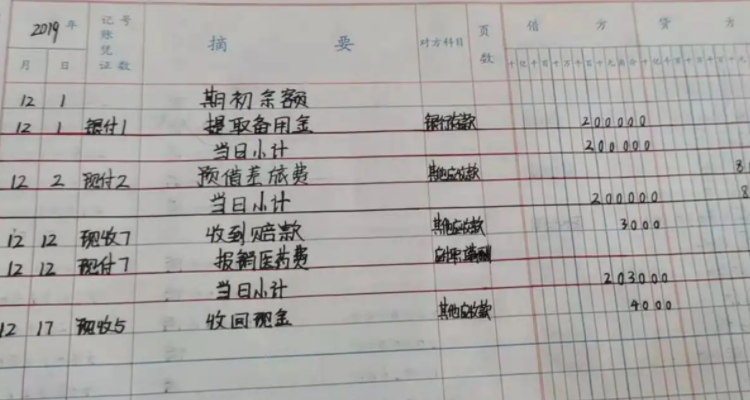 2019 年 记账凭证 号数 摘 要 对方科目 页数 借 方 贷 方
月 日 十亿千百十万千百十元角分 十亿千百十万千百十元
12 1 期初余额
12 1 银付1 提取备用金 银行存款 200000
当日小计 200000
12 2 现付2 预借差旅费 其他应收款 8
当日小计 200000 8
12 12 现收7 收到赔款 其他应收款 3000
12 12 现付7 报销医药费
当日小计 203000
12 17 现收5 收回现金 其他应收款 4000